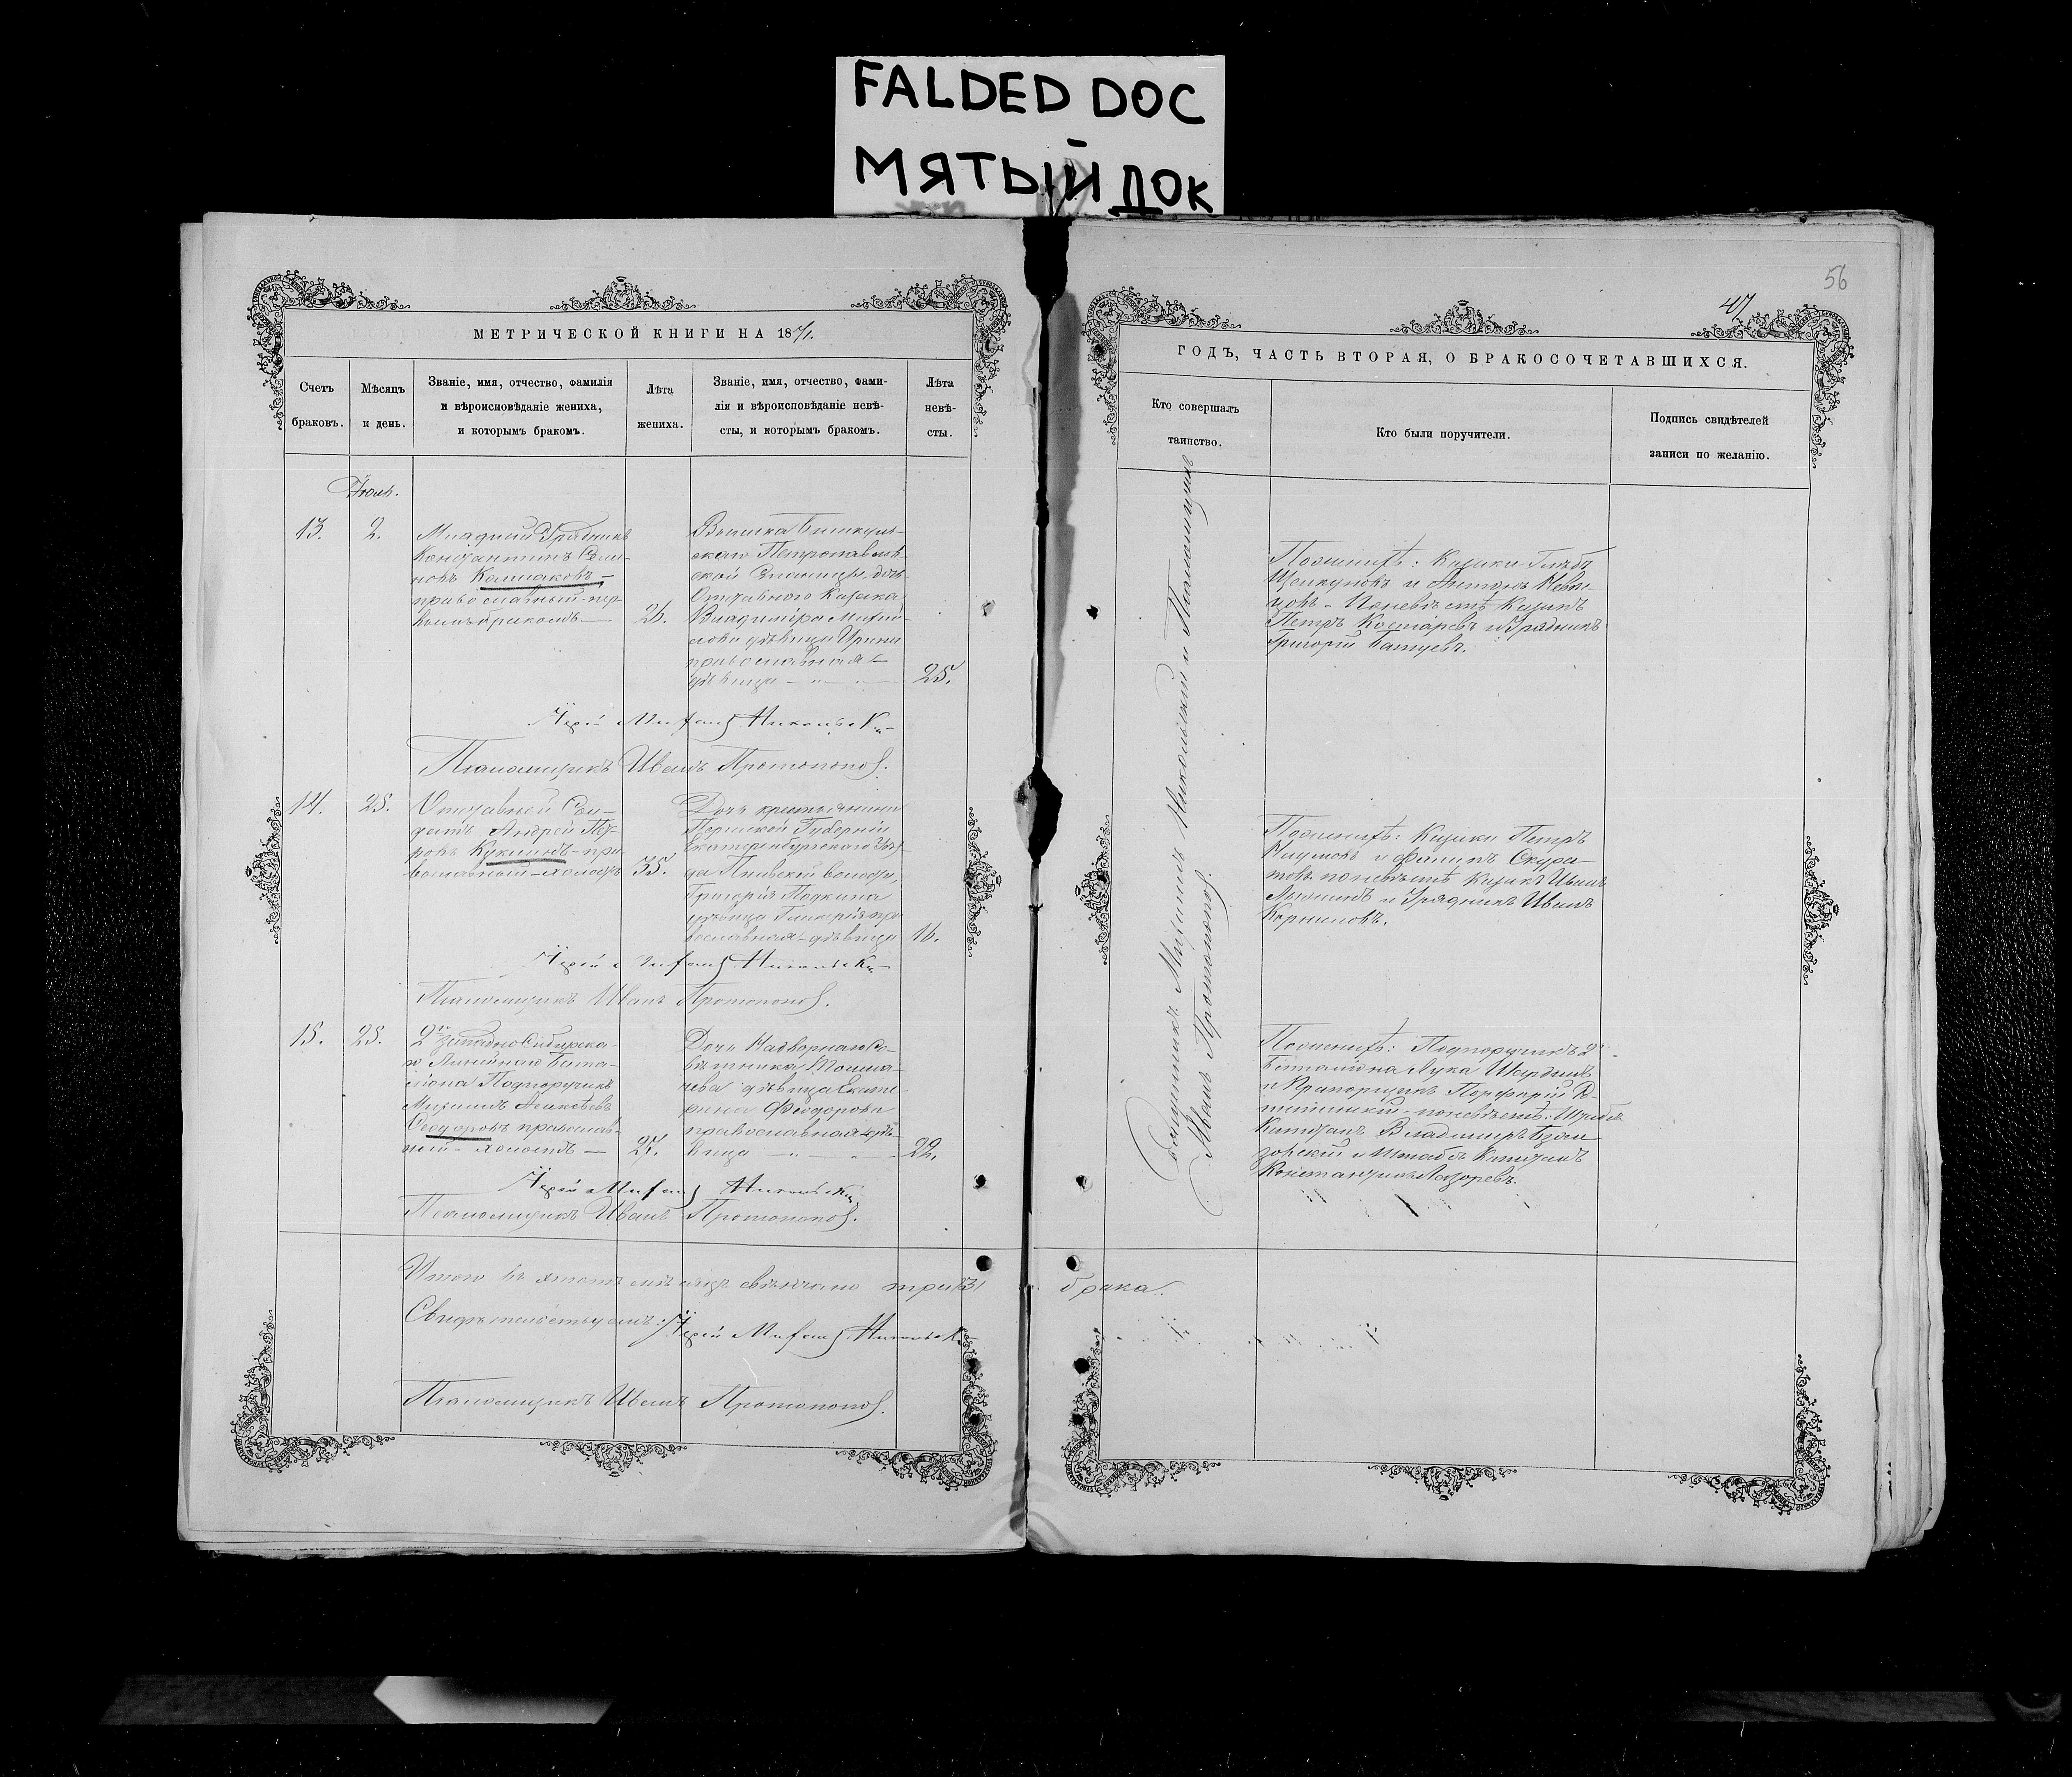 FALDED DOC
МЯТЫЙ ДОК
МЕТРИЧЕСКОЙ КНИГИ НА 1871.
Счетъ
браковъ.
Мѣсяцъ
и день.
Званіе, имя, отчество, фамилія
и вѣроисповѣданіе жениха,
и которымъ бракомъ.
Лѣта
жениха.
Званіе, имя, отчество, фами-
лія и вѣроисповѣданіе невѣ-
сты, и которымъ бракомъ.
Лѣта
невѣ-
сты.
Іюль.
13.
2.
Младшій Урядникъ
Константинъ
Колмаковъ —
православный - пер-
вымъ бракомъ —
26.
Петропавлов-
ской Станицы
Отставного Казака
Владиміра
дѣвица Ирина
православная —
дѣвица
25.
Іерей Михаилъ Никольскій
Псаломщикъ Иванъ Протопоповъ.
14.
25.
Отставной Сол-
датъ Андрей Пет-
ровъ Кукинъ - пра-
вославный - холостъ
35.
Дочь крестьянина
Пермской Губерніи
Екатеринбургскаго Уѣз-
да волости,
Григорія
дѣвица Гликерія пра-
вославная - дѣвица
16.
Іерей Михаилъ Никольскій
Псаломщикъ Иванъ Протопоповъ.
15.
25.
2го Западно Сибирска-
го Линейнаго Бата-
ліона Подпоручикъ
Михаилъ Алексѣевъ
Ѳедоровъ православ-
ный - холостъ —
27.
Дочь Надворнаго Со-
вѣтника
дѣвица Екате-
рина Ѳеодорова
православная - дѣ-
вица
22.
Іерей Михаилъ Никольскій
Псаломщикъ Иванъ Протопоповъ.
Итого въ этомъ мѣсяцѣ свѣнчано три (3) брака.
Свидѣтельствуемъ: Іерей Михаилъ Никольскій
Псаломщикъ Иванъ Протопоповъ.
56
47
ГОДЪ, ЧАСТЬ ВТОРАЯ, О БРАКОСОЧЕТАВШИХСЯ.
Кто совершалъ
таинство.
Кто были поручители.
Подпись свидѣтелей
записи по желанію.
Священникъ Михаилъ Никольскій и Псаломщикъ
Иванъ Протопоповъ.
По женихѣ: Казаки Глѣбъ
и Антонъ
По невѣстѣ Казакъ
Петръ и Урядникъ
Григорій
По женихѣ: Казаки Петръ
Наумовъ и Филипъ Скура-
товъ по невѣстѣ Казакъ Иванъ
и Урядникъ Иванъ
Корниловъ.
По женихѣ: Подпоручикъ 2
Баталіона Лука
и Прапорщикъ Порфирій
по невѣстѣ: Штабсъ
Капитанъ Владиміръ
и Штабсъ Капитанъ
Константинъ Лазоревъ.